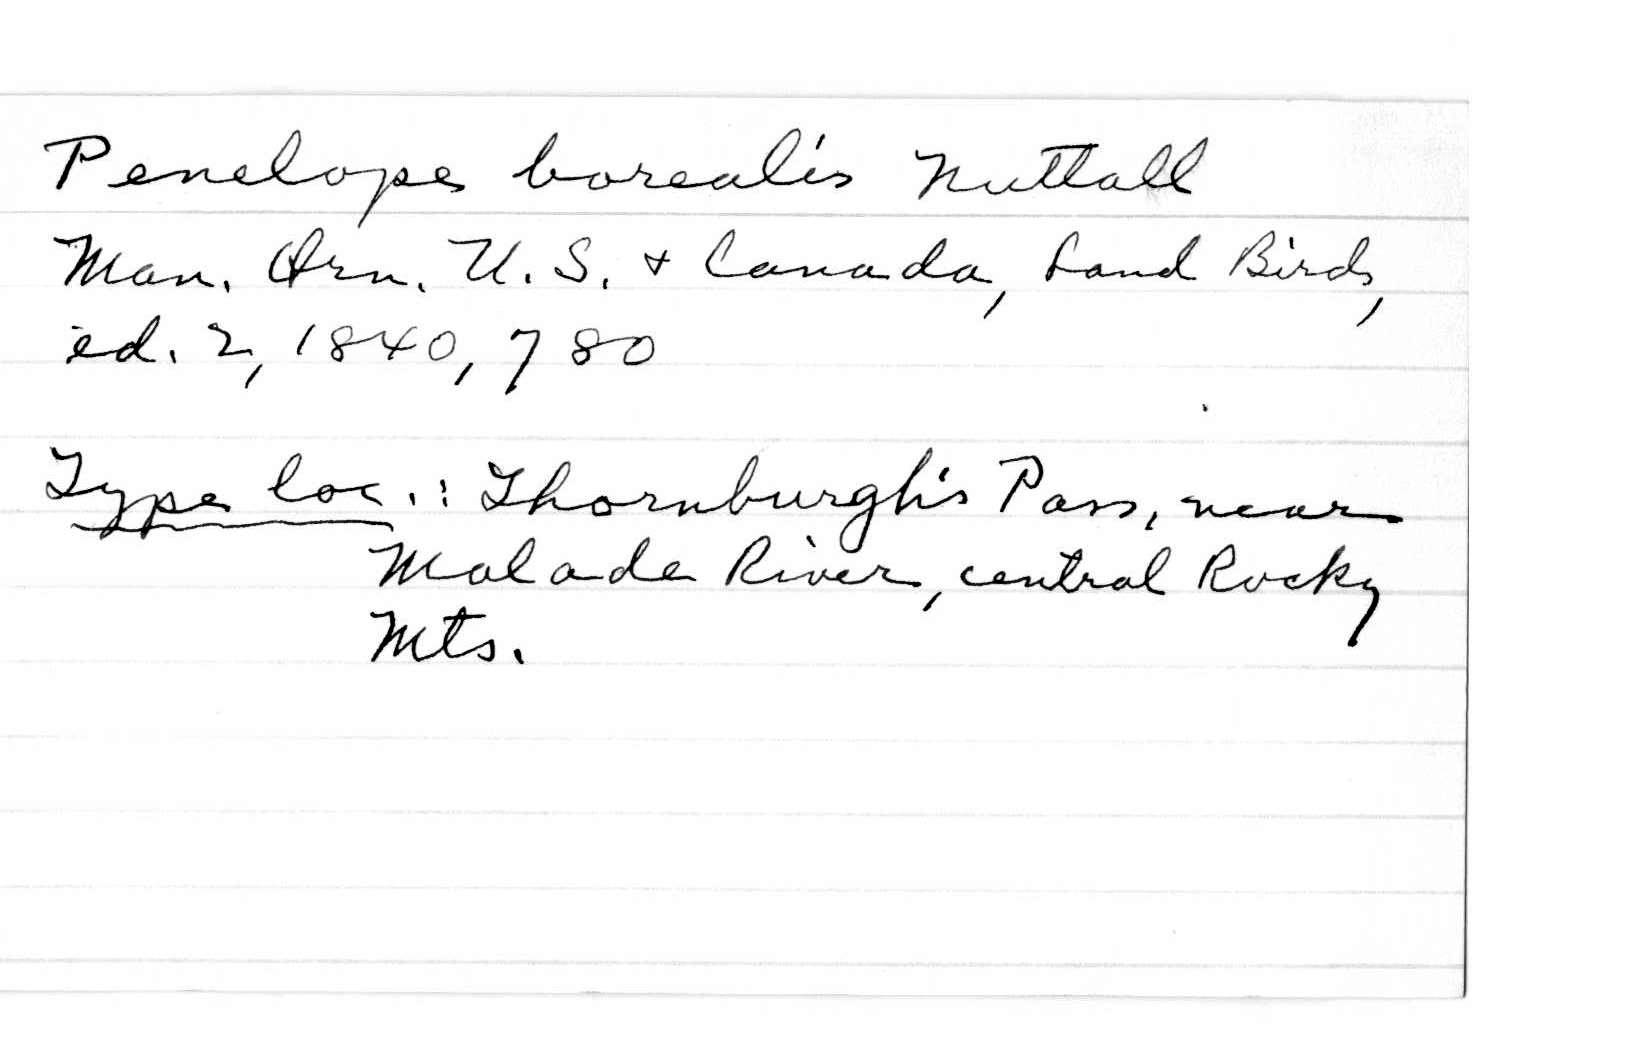 Penelope borealis Nuttall
Man. Orn. U.S. + Canada, Land Birds,
ed. 2, 1840, 780
Type loc.: Thornburgh's Pass, near
Malade River, central Rocky
Mts.